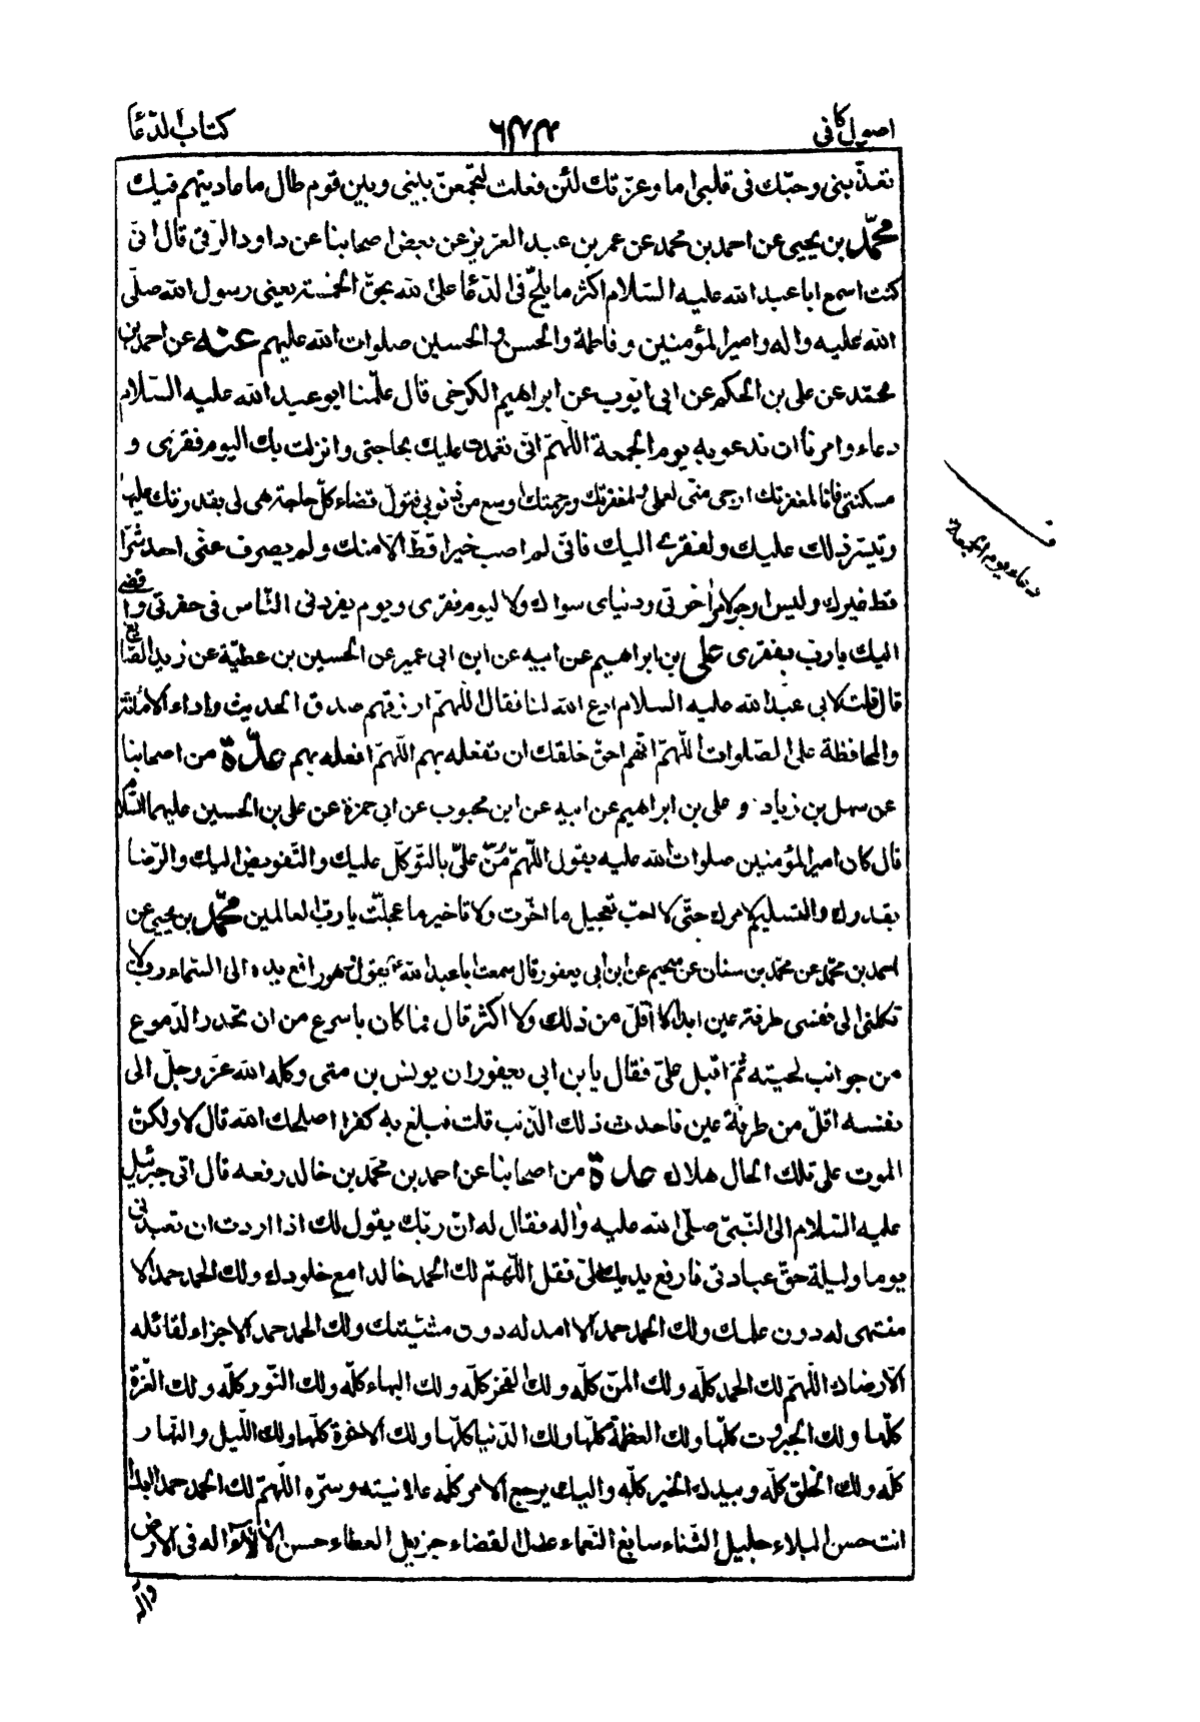 اصول كافى
٦٣٣
كتاب الدّعا
تعذّبنى وحبّك فى قلبى اما وعزّتك لئن فعلت لتجمعنّ بينى وبين قوم طال ما عاديتهم فيك
محمّد بن يحيى عن احمد بن محمد عن عمر بن عبد العزيز عن بعض اصحابنا عن داود الرّقى قال انّى
كنت اسمع ابا عبد الله عليه السّلام اكثر ما يلحّ فى الدّعا على الله بحقّ الخمسة يعنى رسول الله صلّى
الله عليه واله وامير المؤمنين وفاطمة والحسن والحسين صلوات الله عليهم عنه عن احمد بن
محمّد عن على بن الحكم عن ابى ايّوب عن ابراهيم الكرخى قال علّمنا ابو عبد الله عليه السّلام
دعاء وامرنا ان ندعو به يوم الجمعة اللّهمّ انّى تعمّدت عليك بحاجتى وانزلت بك اليوم فقرى و
مسكنتى فانا لمغفرتك ارجى منّى لعملى ولمغفرتك ورحمتك اوسع من ذنوبى فتولّ قضاء كلّ حاجة هى لى بقدرتك عليها
وتيسّر ذلك عليك ولفقرى اليك فانّى لم اصب خيرا قطّ الّا منك ولم يصرف عنّى احد شرّا
قط غيرك وليس ارجو لامر اخرتى ودنياى سواك ولا ليوم فقرى ويوم يفردنى النّاس فى حفرتى وافضى
اليك يا ربّ بفقرى على بن ابراهيم عن ابيه عن ابن ابى عمير عن الحسين بن عطيّة عن زيد الصّايغ
قال قلت لابى عبد الله عليه السلام ادع الله لنا فقال اللّهمّ ارزقهم صدق الحديث واداء الامانة
والمحافظة على الصّلوات اللّهمّ انّهم احقّ خلقك ان تفعله بهم اللّهمّ افعله بهم عدّة من اصحابنا
عن سهل بن زياد و على بن ابراهيم عن ابيه عن ابن محبوب عن ابى حمزة عن على بن الحسين عليهما السّلام
قال كان امير المؤمنين صلوات الله عليه يقول اللّهمّ مُنّ علىّ بالتّوكّل عليك والتّفويض اليك والرّضا
بقدرك والتسليم لامرك حتّى لا احبّ تعجيل ما اخّرت ولا تاخير ما عجلّت يا ربّ العالمين محمّد بن يحيى عن
احمد بن محمّد عن محمّد بن سنان عن سجيم عن ابن ابى يعفور قال سمعت ابا عبد الله ع يقول وهو رافع يده الى السّماء ربّ لا
تكلنى الى نفسى طرفة عين ابدا لا اقلّ من ذلك ولا اكثر قال فما كان باسرع من ان تحدر الدّموع
من جوانب لحيته ثمّ اقبل علىّ فقال يا بن ابى يعفور ان يونس بن متى وكله الله عزّ وجلّ الى
نفسه اقلّ من طرفة عين فاحدث ذلك الذّنب قلت فبلغ به كفرا اصلحك الله قال لا ولكنّ
الموت على تلك الحال هلاك عدة من اصحابنا عن احمد بن محمّد بن خالد رفعه قال اتى جبرئيل
عليه السّلام الى النّبىّ صلّى الله عليه واله فقال له انّ ربّك يقول لك اذا اردت ان تعبدنى
يوما وليلة حقّ عبادتى فارفع يديك الىّ وقل اللّهمّ لك الحمد خالدا مع خلودك ولك الحمد حمدا لا
منتهى له دون علمك ولك الحمد حمدا لا امد له دون مشيّتك ولك الحمد حمدا لا جزاء لقائله
الّا رضاك اللّهمّ لك الحمد كلّه ولك المنّ كلّه ولك الفخر كلّه ولك البهاء كلّه ولك النّور كلّه ولك العزّة
كلّها ولك الجبروت كلّها ولك العظمة كلّها ولك الدّنيا كلّها ولك الاخرة كلّها ولك اللّيل والنّهار
كلّه ولك الخلق كلّه وبيدك الخير كلّه واليك يرجع الامر كلّه علانيته وسرّه اللّهمّ لك الحمد حمدا ابدا
انت حسن البلاء جليل الثّناء سابغ النّعماء عدل القضاء جزيل العطاء حسن الالاء اله فى الارض
واله
دعاء يوم الجمعة